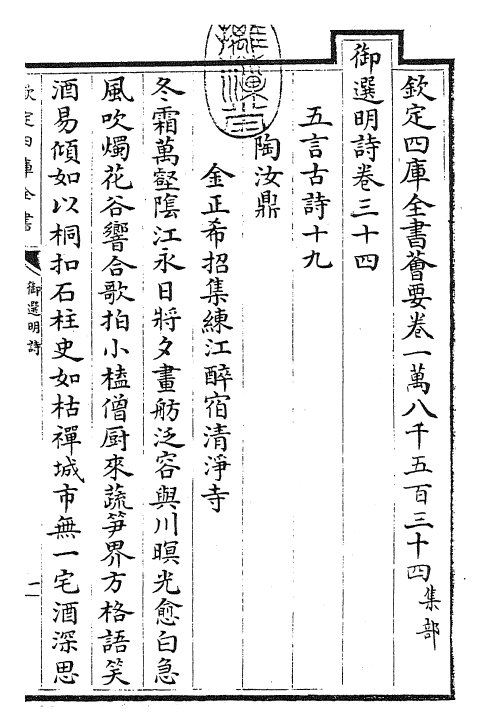 欽定四庫全書薈要卷一萬八千五百三十四 集部
御選明詩卷三十四
五言古詩十九
陶汝鼎
金正希招集練江醉宿清淨寺
冬霜萬壑隂江永日將夕畫舫泛容與川暝光愈白急
風吹燭花谷響合歌拍小榼僧厨來蔬笋界方格語笑
酒易傾如以桐扣石柱史如枯禪城市無一宅酒深思
欽定四庫全書
御選明詩
一